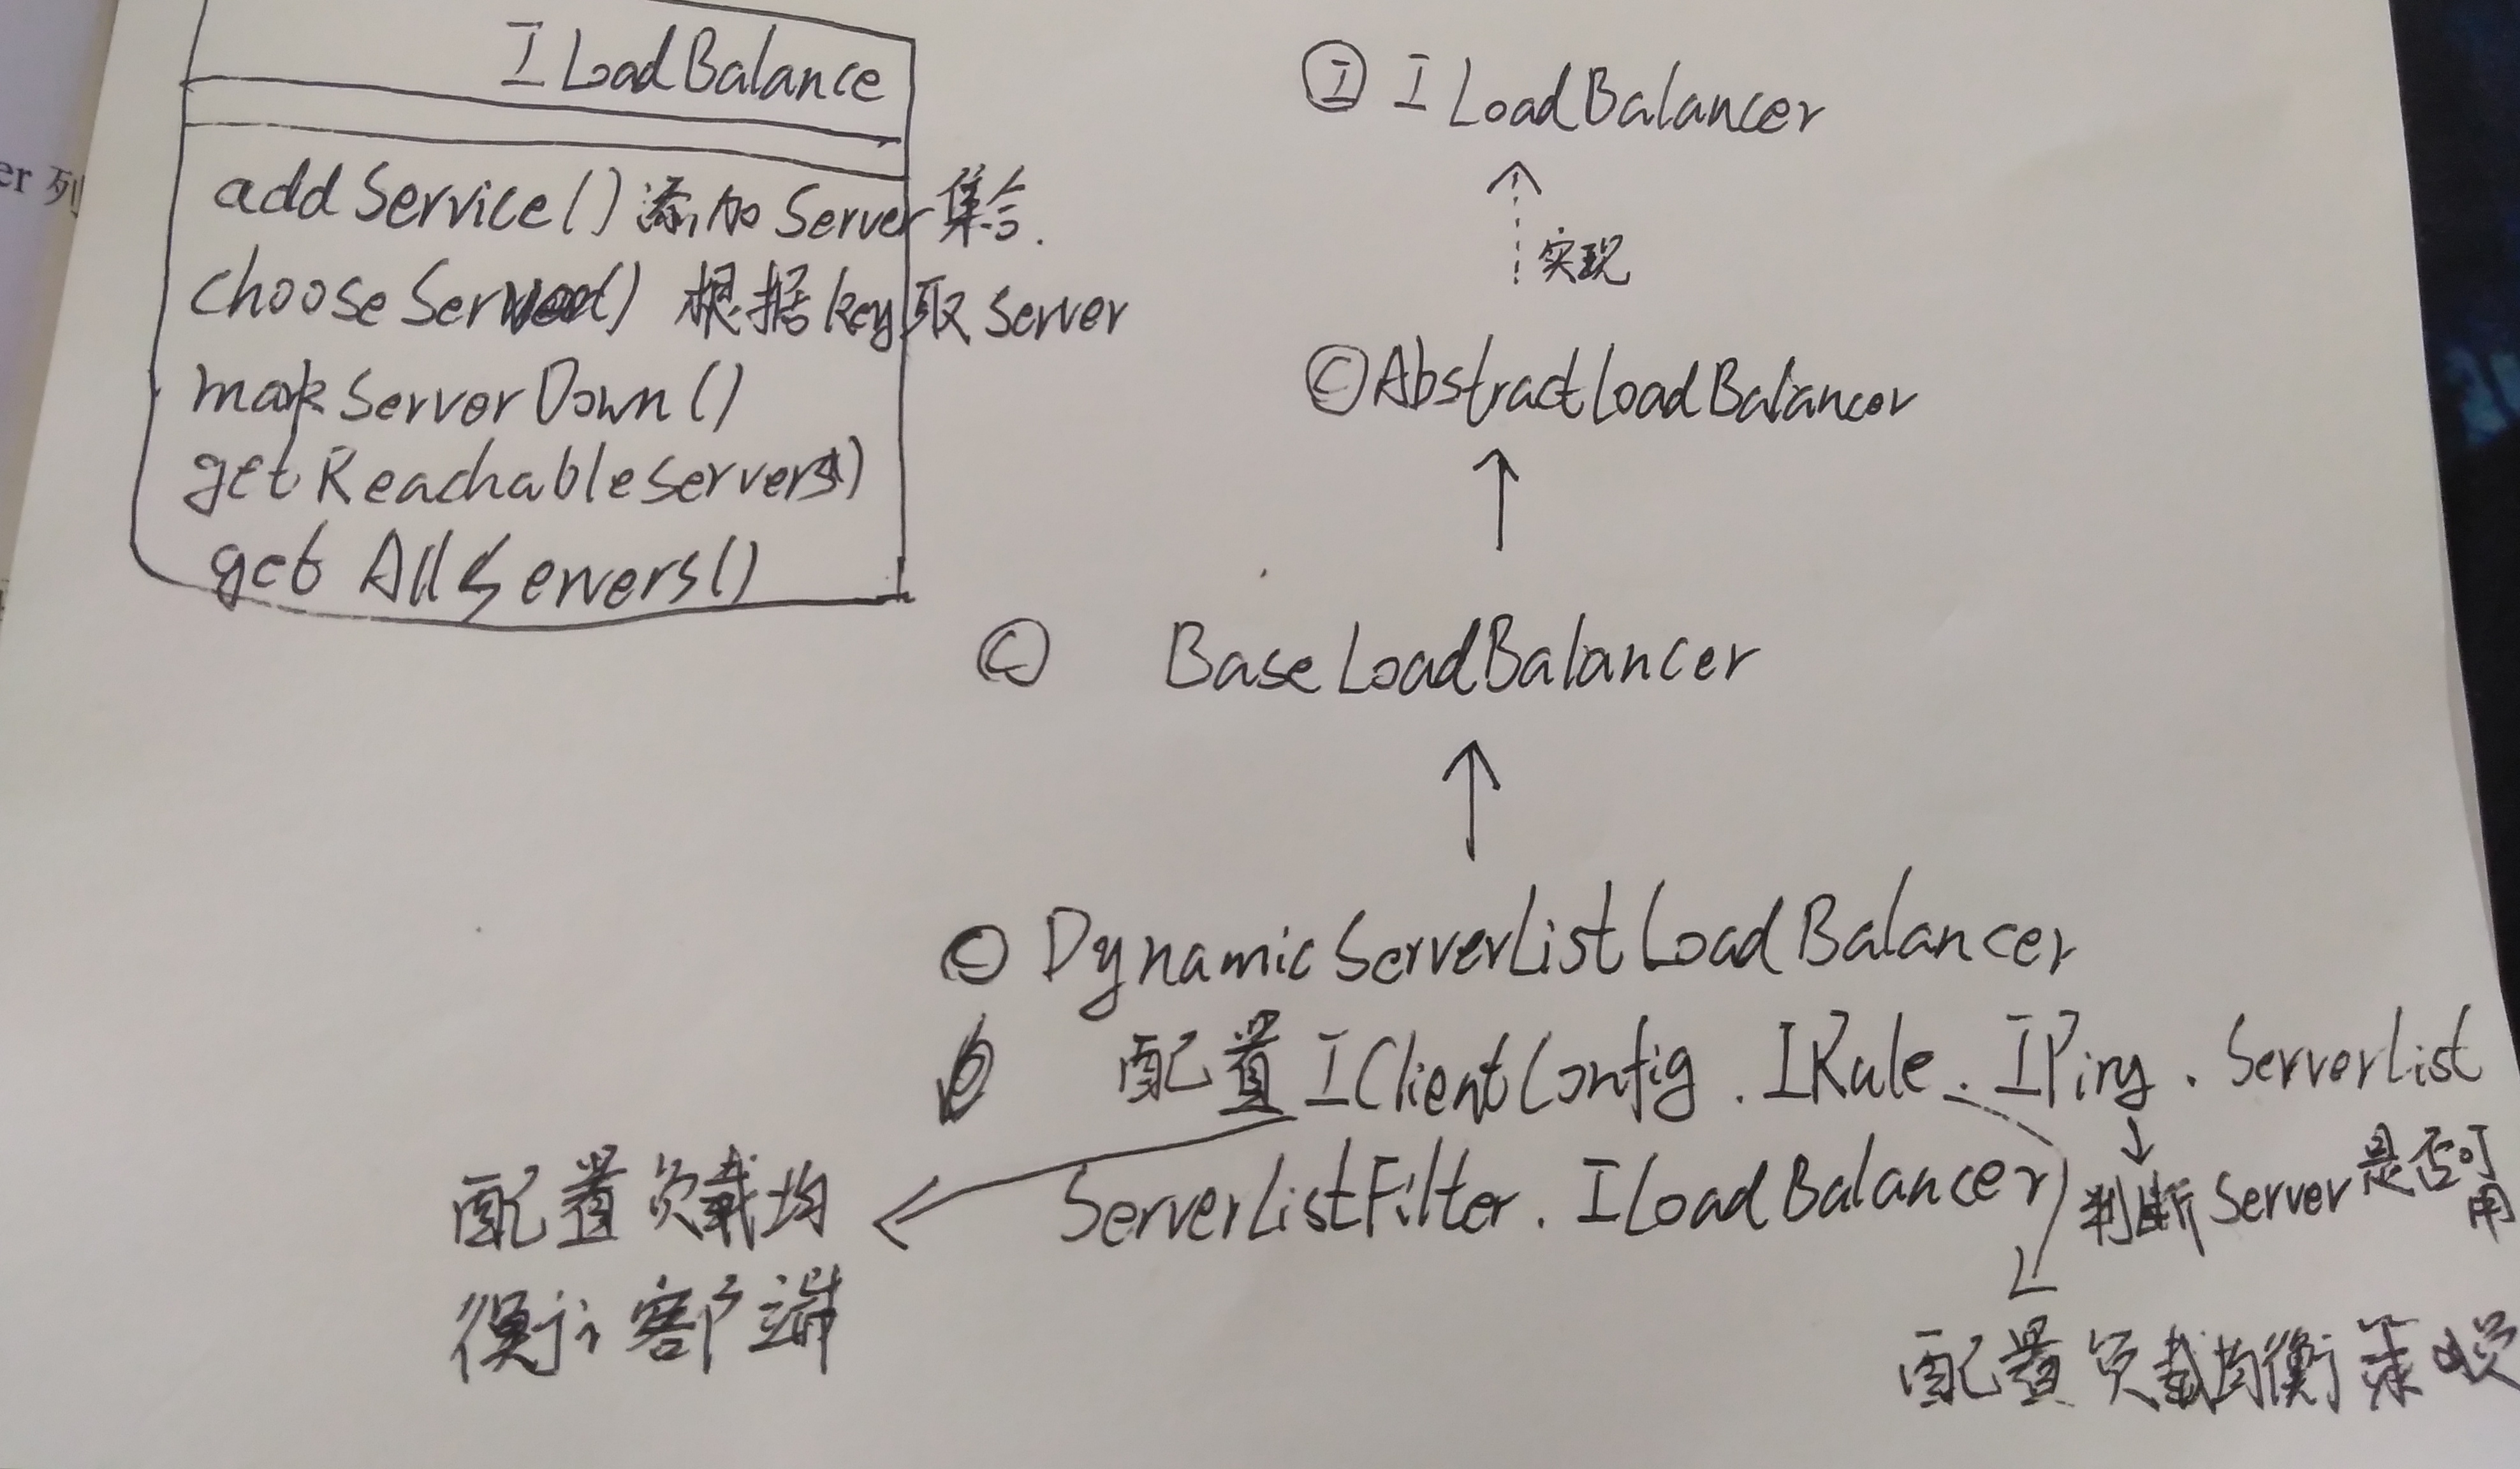 ILoadBalance
addService() 添加Server集合.
choose 根据key取server
markServerDown()
getReachableServers()
getAllServers()
er 列
Ⓘ ILoadBalancer
实现
Ⓒ AbstractLoadBalancer
Ⓒ BaseLoadBalancer
Ⓒ DynamicServerListLoadBalancer
配置 IClientConfig . IRule . IPing . ServerList
ServerListFilter . ILoadBalancer
判断Server是否可用
配置负载均
衡 客户端
配置负载均衡策略